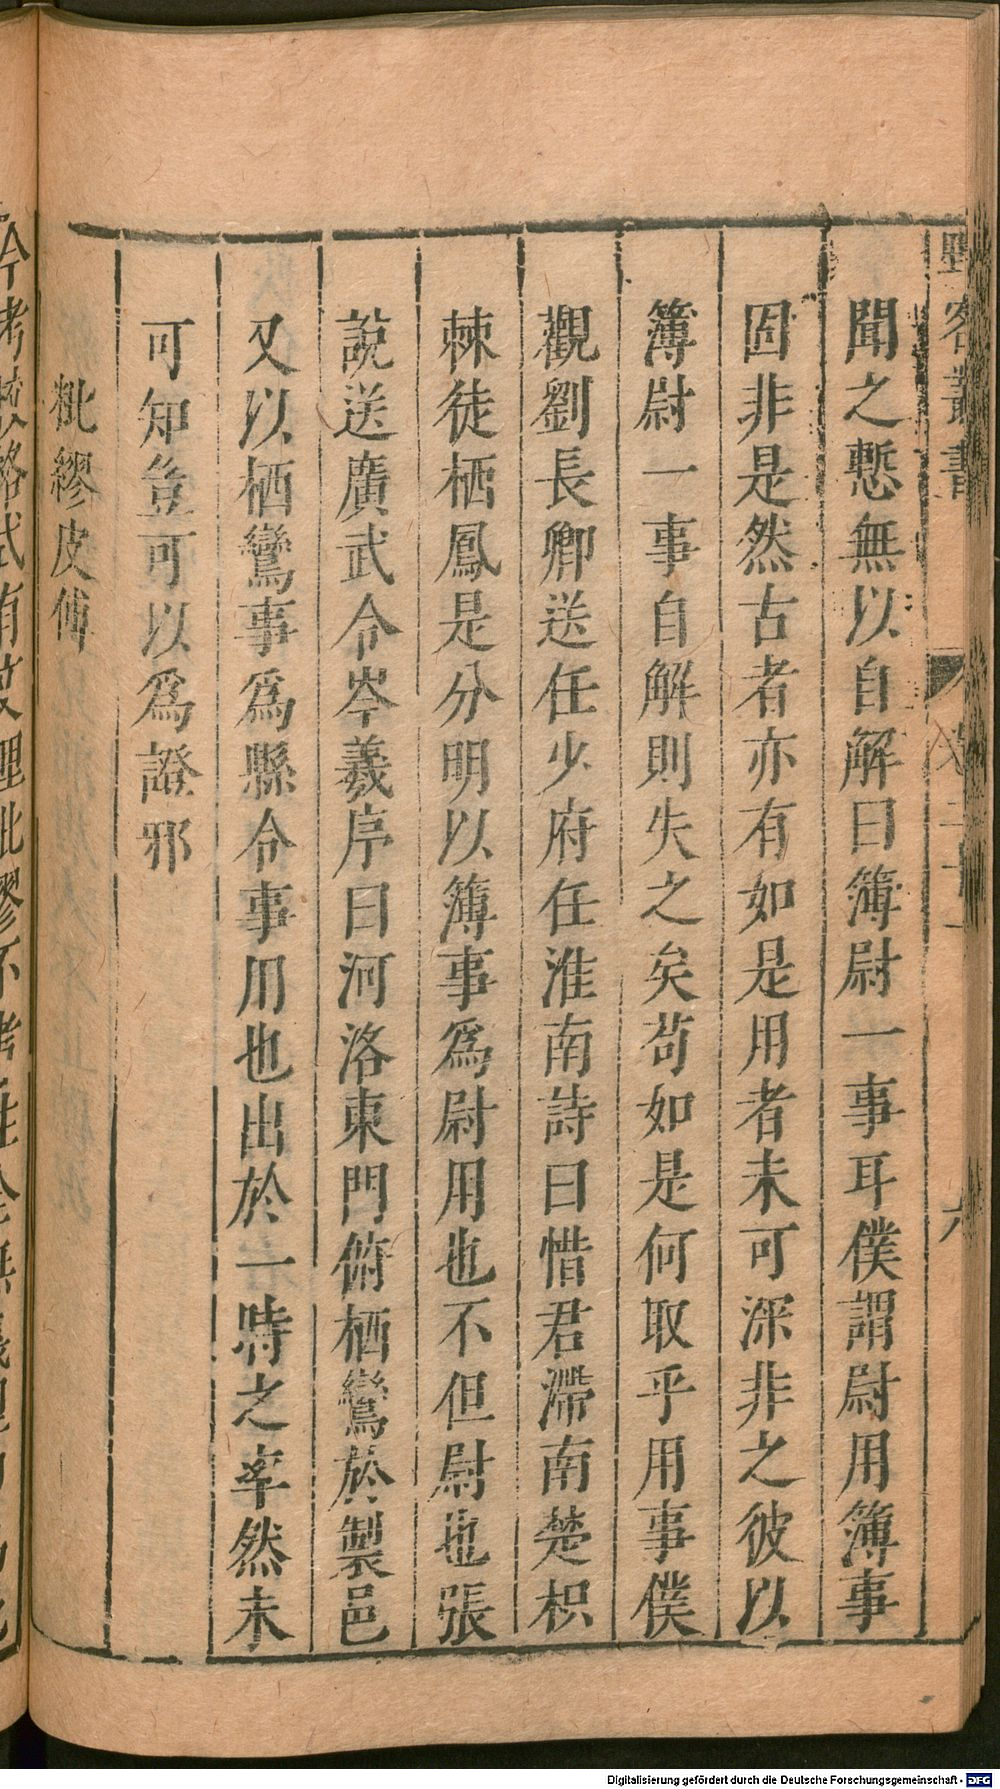 野客叢書 卷二十 六
聞之慙無以自解曰簿尉一事耳僕謂尉用簿事
固非是然古者亦有如是用者未可深非之彼以
簿尉一事自解則失之矣苟如是何取乎用事僕
觀劉長卿送任少府任淮南詩曰惜君滯南楚枳
棘徒栖鳳是分明以簿事為尉用也不但尉也張
說送廣武令岑羲序曰河洛東門俯栖鸞於製邑
又以栖鸞事為縣令事用也出於一時之率然未
可知豈可以為證邪
紕繆皮傅
Digitalisierung gefördert durch die Deutsche Forschungsgemeinschaft - DFG